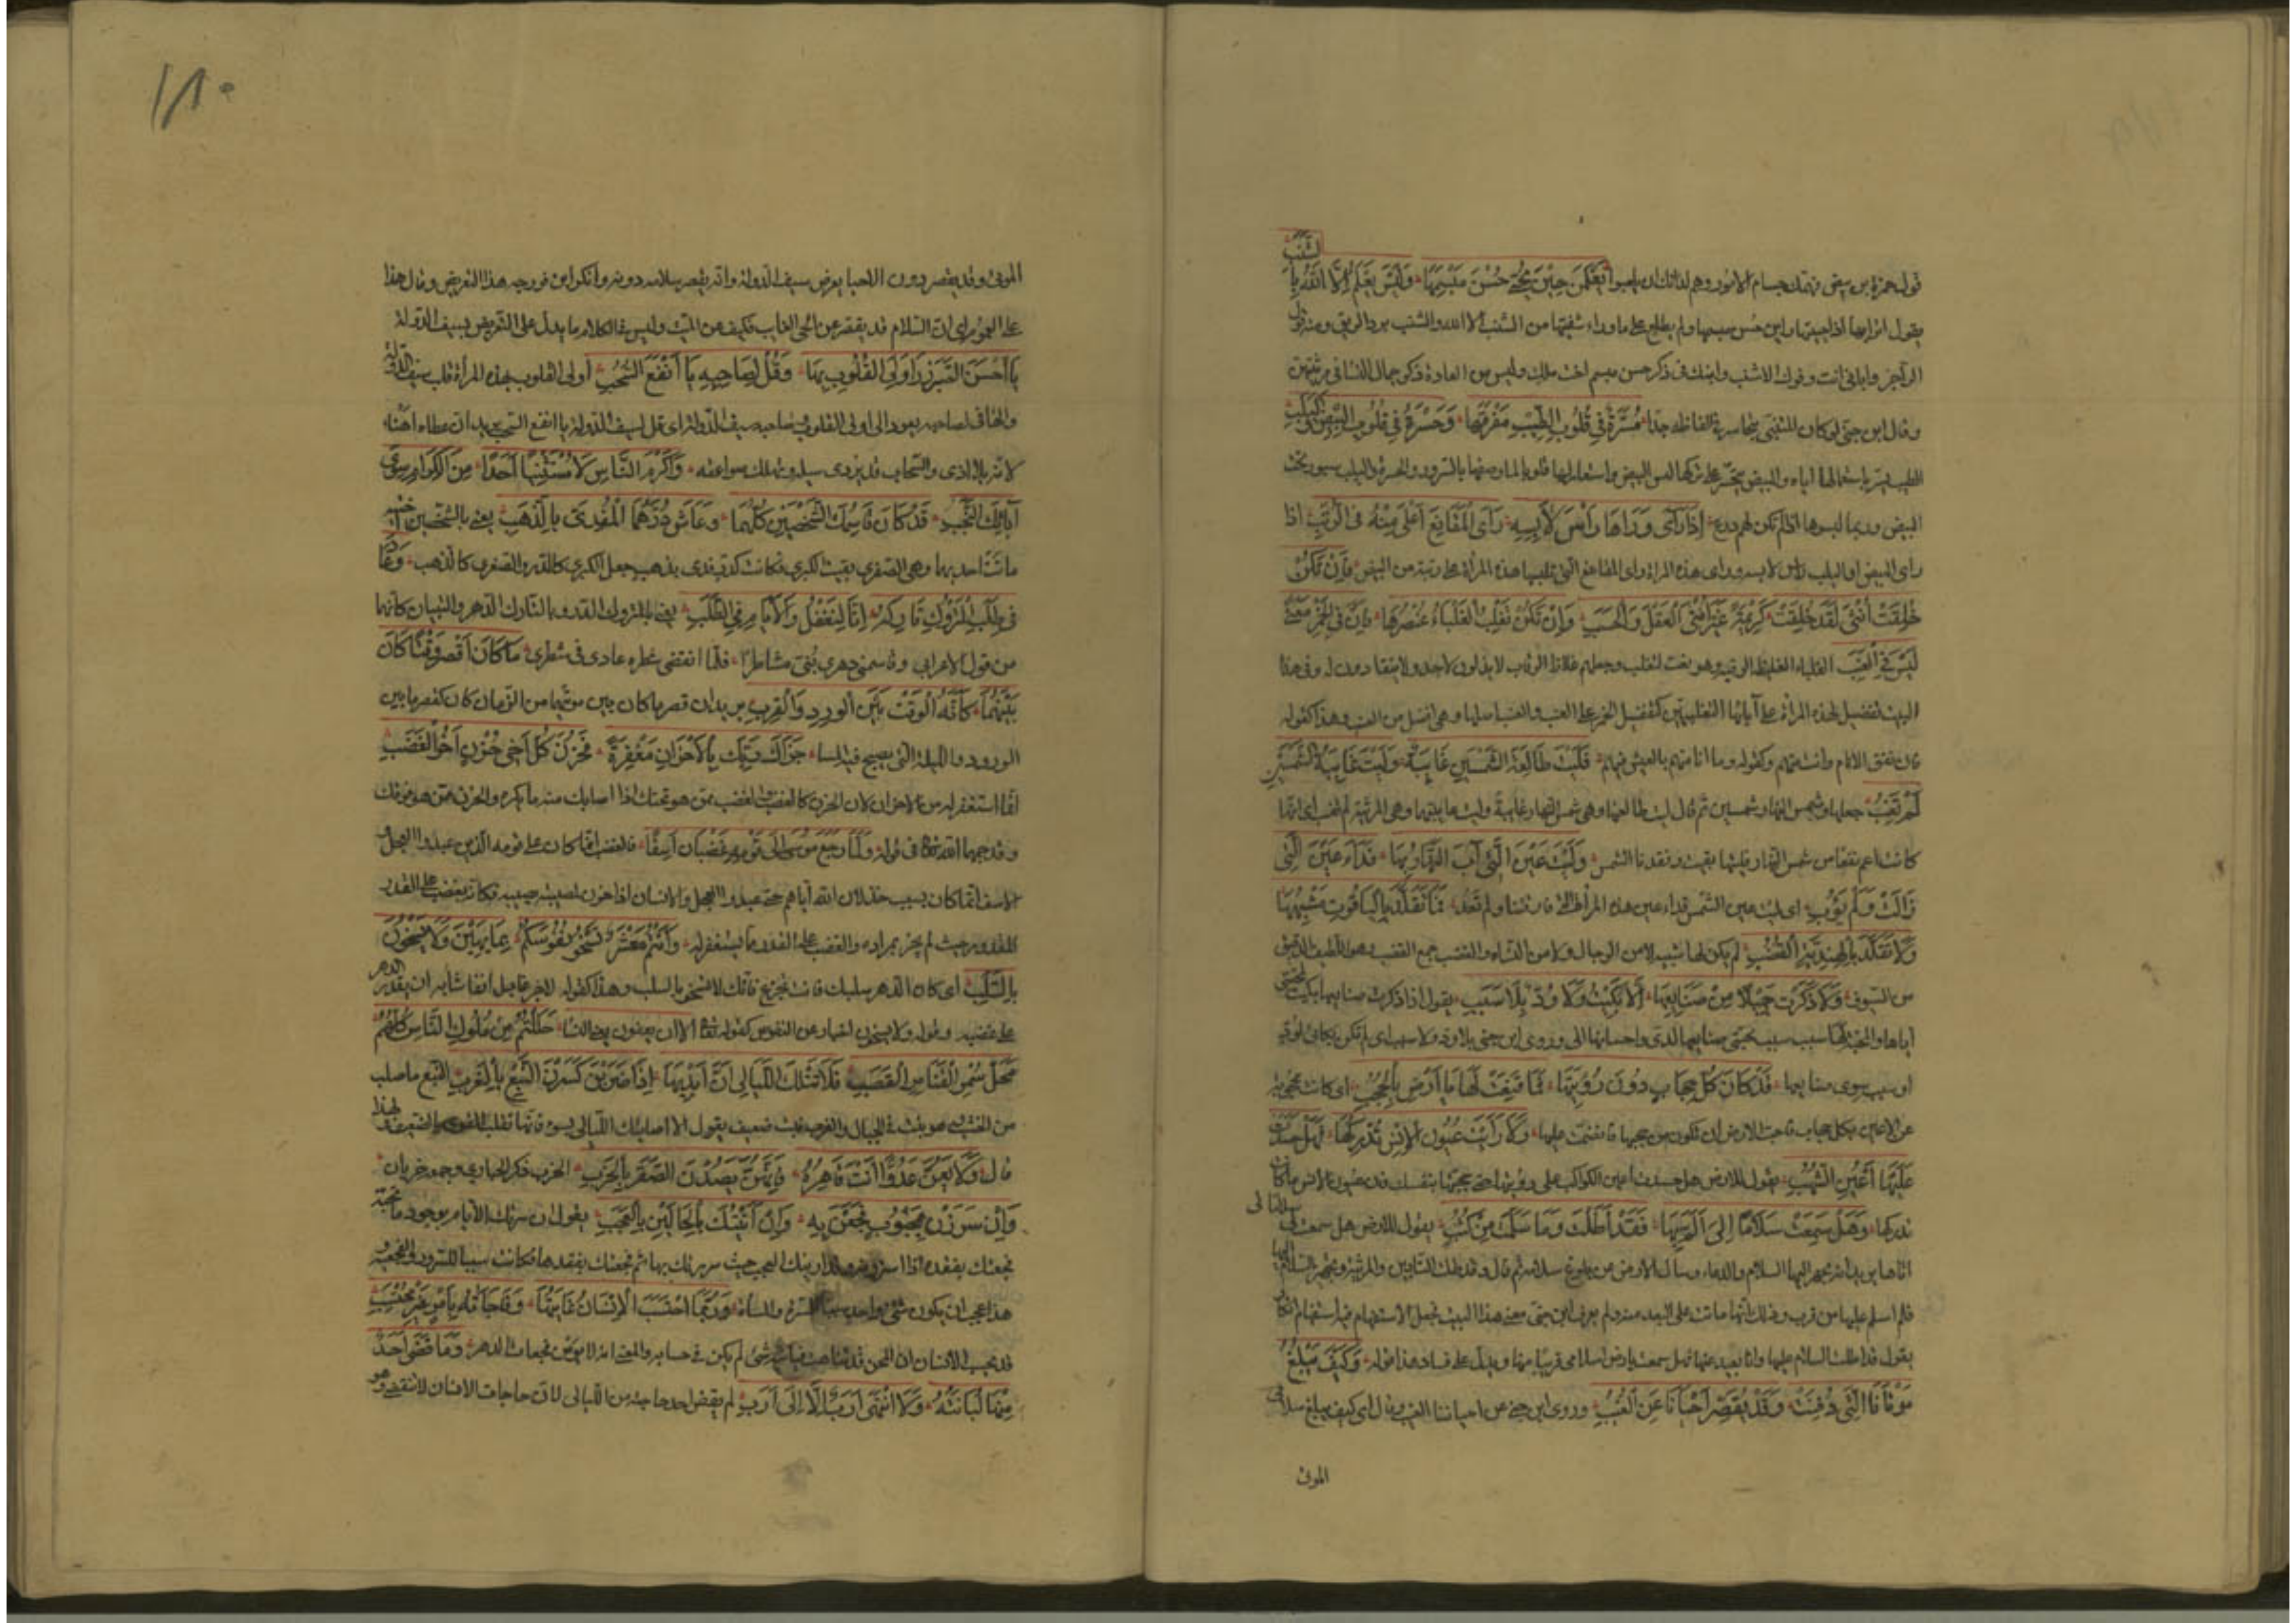 بالشنب
قول حمزة بن بيض فهمك جسام الامور وهم لداتك ان يلعبوا يَعْلَمْنَ حِيْنَ تُحَيَّى حُسْنَ مَبْسِمِهَا وَلَيْسَ يَعْلَمُ اِلَّا اللّٰهُ
يقول اترابها اذا حيينها راين حسن مبسمها ولم يطلع على ما وراء شفتيها من الشنب الا الله والشنب برد الريق ومنه قول
الراجز وابابي انت وفوك الاشنب واساء في ذكر حسن مبسم اخت ملك وليس من العادة ذكر جمال النساء في مرثيتهن
وقال ابن جني لو كان المتنبي يتحاسر في الفاظه جدا مَسَرَّةٌ فِي قُلُوبِ الطِّيْبِ مَفْرِقُهَا وَحَسْرَةٌ فِي قُلُوبِ الْبِيْضِ وَالْيَلَبِ
الطيب يسر باستعمالها اياه والبيض يتحسر على تركها لبس البيض واستعار لها قلوبا لما وصفها بالسرور والحسرة واليلب سيور تحت
البيض وربما لبسوها اذا لم تكن لهم دروع اِذَا رَأَى وَرَآهَا رَأْسَ لَابِسِهِ رَأَى الْمَقَانِعَ اَعْلَى مِنْهُ فِي الرُّتَبِ اذا
راى البيض او اليلب راس لابسه وراى هذه المراة راى المقانع التي تلبسها هذه المراة اعلى رتبة من البيض فَاِنْ تَكُنْ
خُلِقَتْ اُنْثَى لَقَدْ خُلِقَتْ كَرِيْمَةً غَيْرَ اُنْثَى الْعَقْلِ وَالْحَسَبِ وَاِنْ تَكُنْ تَغْلِبُ الْغَلْبَاءُ عُنْصُرَهَا فَاِنَّ فِي الْخَمْرِ مَعْنًى
لَيْسَ فِي الْعِنَبِ الغلباء الغليظة الرقبة وهو نعت لتغلب وجعلهم غلاظ الرقاب لانهم لا يذلون لاحد ولا ينقادون له وفي هذا
البيت تفضيل لهذه المراة على آبائها التغلبيين كتفضيل الخمر على العنب والعنب اصلها وهي افضل من العنب وهذا كقوله
فان تفق الانام وانت منهم وكقوله وما انا منهم بالعيش فيهم فَلَيْتَ طَالِعَةَ الشَّمْسَيْنِ غَايِبَةٌ وَلَيْتَ غَايِبَةَ الشَّمْسَيْنِ
لَمْ تَغِبِ جعلها وشمس النهار شمسين ثم قال ليت طالعتهما وهي شمس النهار غايبة وليت غايبتهما وهي المرثية لم تغب اي انها
كانت اعم نفعا من شمس النهار فليتها بقيت وفقدنا الشمس وَلَيْتَ عَيْنَ الَّتِي آبَ النَّهَارُ بِهَا فِدَاءُ عَيْنِ الَّتِي
زَالَتْ وَلَمْ تَؤُبِ اي ليت عين الشمس فداء عين هذه المراة التي فارقتنا ولم تعد فَمَا تَقَلَّدَ بِالْيَاقُوتِ مُشْبِهُهَا
وَلَا تَقَلَّدَ بِالْهِنْدِيَّةِ الْقُضُبِ لم يكن لها شبيه لا من الرجال ولا من النساء والقضب جمع القضيب وهو اللطيف الدقيق
من السيوف وَلَا ذَكَرْتُ جَمِيْلًا مِنْ صَنَايِعِهَا اِلَّا بَكَيْتُ وَلَا وُدٌّ بِلَا سَبَبِ يقول اذا ذكرت صنايعها بكيت لمحبتي
اياها والمحبة لها سبب سبب محبتي صنايعها لدي واحسانها الي وروى ابن جني بلا ود ولا سبب اي لم تكن بكائي لود
او سبب سوى صنايعها قَدْ كَانَ كُلُّ حِجَابٍ دُوْنَ رُؤْيَتِهَا فَمَا قَنِعْتِ لَهَا يَا اَرْضُ بِالْحُجُبِ اي كانت محجوبة
عن الاعين بكل حجاب فاحببت الارض ان تكون من حجبها فانضمت عليها وَلَا رَأَيْتِ عُيُونَ الْاِنْسِ تُدْرِكُهَا فَهَلْ حَسَدْتِ
عَلَيْهَا اَعْيُنَ الشُّهُبِ يقول للارض هل حسدت اعين الكواكب على رؤيتها حتى حجبتها بنفسك فان عيون الانس ما كانت
تدركها وَهَلْ سَمِعْتِ سَلَامًا لِي اَلَمَّ بِهَا فَقَدْ اَطَلْتُ وَمَا سَلَّمْتُ مِنْ كَثَبِ يقول للارض هل سمعت سلاما لي
اتاها يريد انه يجهز اليها السلام والدعاء وسال الارض عن بلوغ سلامه ثم قال وقد اطلت التابين والمرثية وتجهيز السلام اليها
فلم اسلم عليها من قرب وذلك انها ماتت على البعد منه ولم يعرف ابن جني معنى هذا البيت فجعل الاستفهام فيه استفهام انكار
يقول قد اطلت السلام عليها وانا بعيد عنها فهل سمعت يا ارض سلامي قريبا منها ويدل على فساد هذا قوله وَكَيْفَ يَبْلُغُ
مَوْتَانَا الَّتِي دُفِنَتْ وَقَدْ يُقَصِّرُ عَنْ اَحْيَائِنَا الْغُيُبِ وروى ابن جني عن احيائنا الغيب وقال اي كيف يبلغ سلامي
الموتى
١٨٠
الموتى وقد يقصر دون الاحيا يعرض بسيف الدولة وانه يقصر سلامه دونه وانكر ابن فورجه هذا التعريض وقال هذا
على العموم اي ان السلام قد يقصر عن الحي الغايب فكيف عن الميت وليس في الكلام ما يدل على التعريض بسيف الدولة
يَا اَحْسَنَ الصَّبْرِ زُرْ اَوْلَى الْقُلُوبِ بِهَا وَقُلْ لِصَاحِبِهِ يَا اَنْفَعَ السُّحُبِ اولى القلوب بهذه المراة قلب سيف الدولة
والها في لصاحبه يعود الى اولى القلوب وصاحبه سيف الدولة اي قل لسيف الدولة يا انفع السحب يريد ان عطاءه اهنأ
لانه بلا اذى والسحاب قد يردي سيله وتهلك صواعقه وَاَكْرَمَ النَّاسِ لَا مُسْتَثْنِيًا اَحَدًا مِنَ الْكِرَامِ سِوَى
آبَائِكَ النُّجُبِ قَدْ كَانَ قَاسَمَكَ الشَّخْصَيْنِ دَهْرُهُمَا وَعَاشَ دُرُّهُمَا الْمَفْدِيُّ بِالذَّهَبِ يعني بالشخصين اختيه
ماتت احديهما وهي الصغرى بقيت الكبرى فكانت كدر فدي بذهب جعل الكبرى كالدر والصغرى كالذهب وَعَادَ
فِي طَلَبِ الْمَتْرُوكِ تَارِكُهُ اِنَّا لَنَغْفُلُ وَالْاَيَّامُ فِي الطَّلَبِ يعني بالمتروك الدر وبالتارك الدهر والبيتان كانهما
من قول الاعرابي وقاسمني دهري بُنَيَّ مشاطرا فلما انقضى شطره عاد في شطري مَا كَانَ اَقْصَرَ وَقْتًا كَانَ
بَيْنَهُمَا كَاَنَّهُ الْوَقْتُ بَيْنَ الْوِرْدِ وَالْقَرَبِ يريد ان قصر ما كان بين موتهما من الزمان كان كقصر ما بين
الورود والليلة التي يصبح فيها الماء جَزَاكَ رَبُّكَ بِالْاَحْزَانِ مَغْفِرَةً فَحُزْنُ كُلِّ اَخِي حُزْنٍ اَخُو الْغَضَبِ
انما استغفر له من الاحزان لان الحزن كالغضب والغضب ممن هو تحتك اذا اصابك منه ما يكره والحزن ممن هو فوقك
وقد جمعهما الله تعالى في قوله وَلَمَّا رَجَعَ مُوسَى اِلَى قَوْمِهِ غَضْبَانَ اَسِفًا فالغضب انما كان على قومه الذين عبدوا العجل
والاسف انما كان بسبب خذلان الله اياهم حتى عبدوا العجل والانسان اذا حزن لمصيبة تصيبه فكانه يغضب على القدر
المقدور حيث لم يجر بمراده والغضب على القدر مما يستغفر له وَاَنْتُمْ مَعْشَرٌ تَسْخُو نُفُوسُكُمْ بِمَا يَهَبْنَ وَلَا يَسْخُونَ
بِالسَّلَبِ اي كان الدهر سلبك فانت تجزع فانك لا تسخو بالسلب وهذا كقوله لاجزعا بل انفا شابه ان يقدر الدهر
على غضبه وقوله ولا يسخون اخبار عن النفوس كقوله تعالى الا ان يعفون حَلَلْتُمُ مِنْ مُلُوكِ النَّاسِ كُلِّهِمِ
مَحَلَّ سُمْرِ الْقَنَا مِنْ سَايِرِ الْقَصَبِ فَلَا تَنَلْكَ اللَّيَالِي اِنَّ اَيْدِيَهَا اِذَا ضَرَبْنَ كَسَرْنَ النَّبْعَ بِالْغَرَبِ النبع ما صلب
من الخشب وهو ينبت في الجبال والغرب نبت ضعيف يقول لا اصابتك الليالي بسوء فانها تغلب القوي بالضعيف لهذا
قال وَلَا يُعِنَّ عَدُوًّا اَنْتَ قَاهِرُهُ فَاِنَّهُنَّ يَصِدْنَ الصَّقْرَ بِالْخَرَبِ الخرب ذكر الحبارى وجمعه خربان
وَاِنْ سَرَرْنَ بِمَحْبُوبٍ فَجَعْنَ بِهِ وَاِنْ اَتَيْنَكَ بِالْحَالَيْنِ بِالْعَجَبِ يقول ان سرتك الايام بوجود ما تحبه
فجعتك بفقده اذا استردته وقد ارينك العجب حيث سررنك بها ثم فجعنك بفقدها فكانت سببا للسرور والفجيعة
هذا عجب ان يكون شيء واحد سببا للمسرة والمساة وَرُبَّمَا احْتَسَبَ الْاِنْسَانُ غَايَتَهَا وَفَاجَأَتْهُ بِاَمْرٍ غَيْرِ مُحْتَسَبِ
قد يحسب الانسان ان المحن قد تناهت فياتيه شيء لم يكن في حسابه والمعنى انه لا يؤمن فجعات الدهر وَمَا قَضَى اَحَدٌ
مِنْهَا لُبَانَتَهُ وَلَا انْتَهَى اَرَبٌ اِلَّا اِلَى اَرَبِ لم يقض احد حاجته من الليالي لان حاجات الانسان لا تنقضي وهو